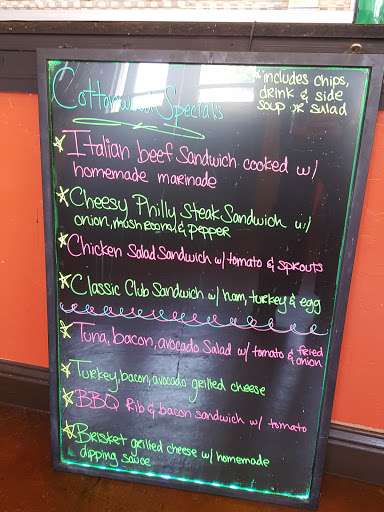 Cottonwood Specials
*includes chips,
drink & side
soup or salad
Italian beef Sandwich cooked w/
homemade marinade
Cheesy Philly Steak Sandwich w/
onion, mushroom & pepper
Chicken Salad Sandwich w/ tomato & sprouts
Classic Club Sandwich w/ ham, turkey & egg
Tuna, bacon, avocado Salad w/ tomato & fried
onion
Turkey, bacon, avocado grilled cheese
BBQ Rib & bacon sandwich w/ tomato
Brisket grilled cheese w/ homemade
dipping sauce